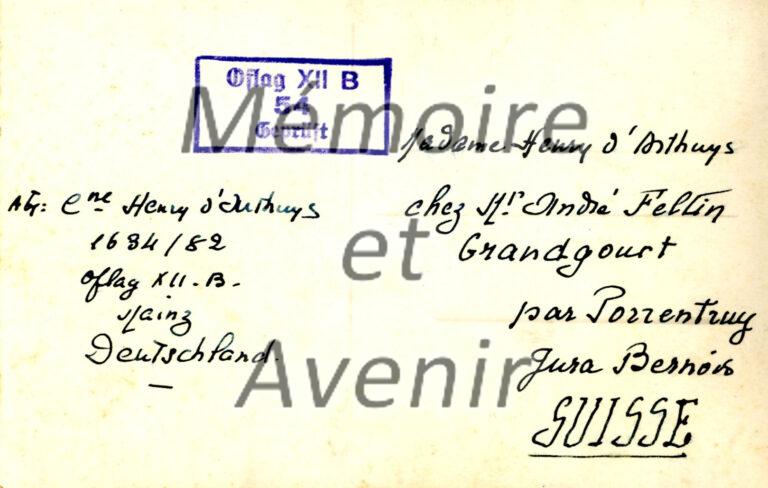 Oflag XII B
54
Geprüft
Madame Henry d'Arthuys
chez Mr André Feltin
Grandgourt
par Porrentruy
Jura Bernois
SUISSE
Cne Henry d'Arthuys
1634/82
Oflag XII.B.
Mainz
Deutschland
Mémoire
et
Avenir